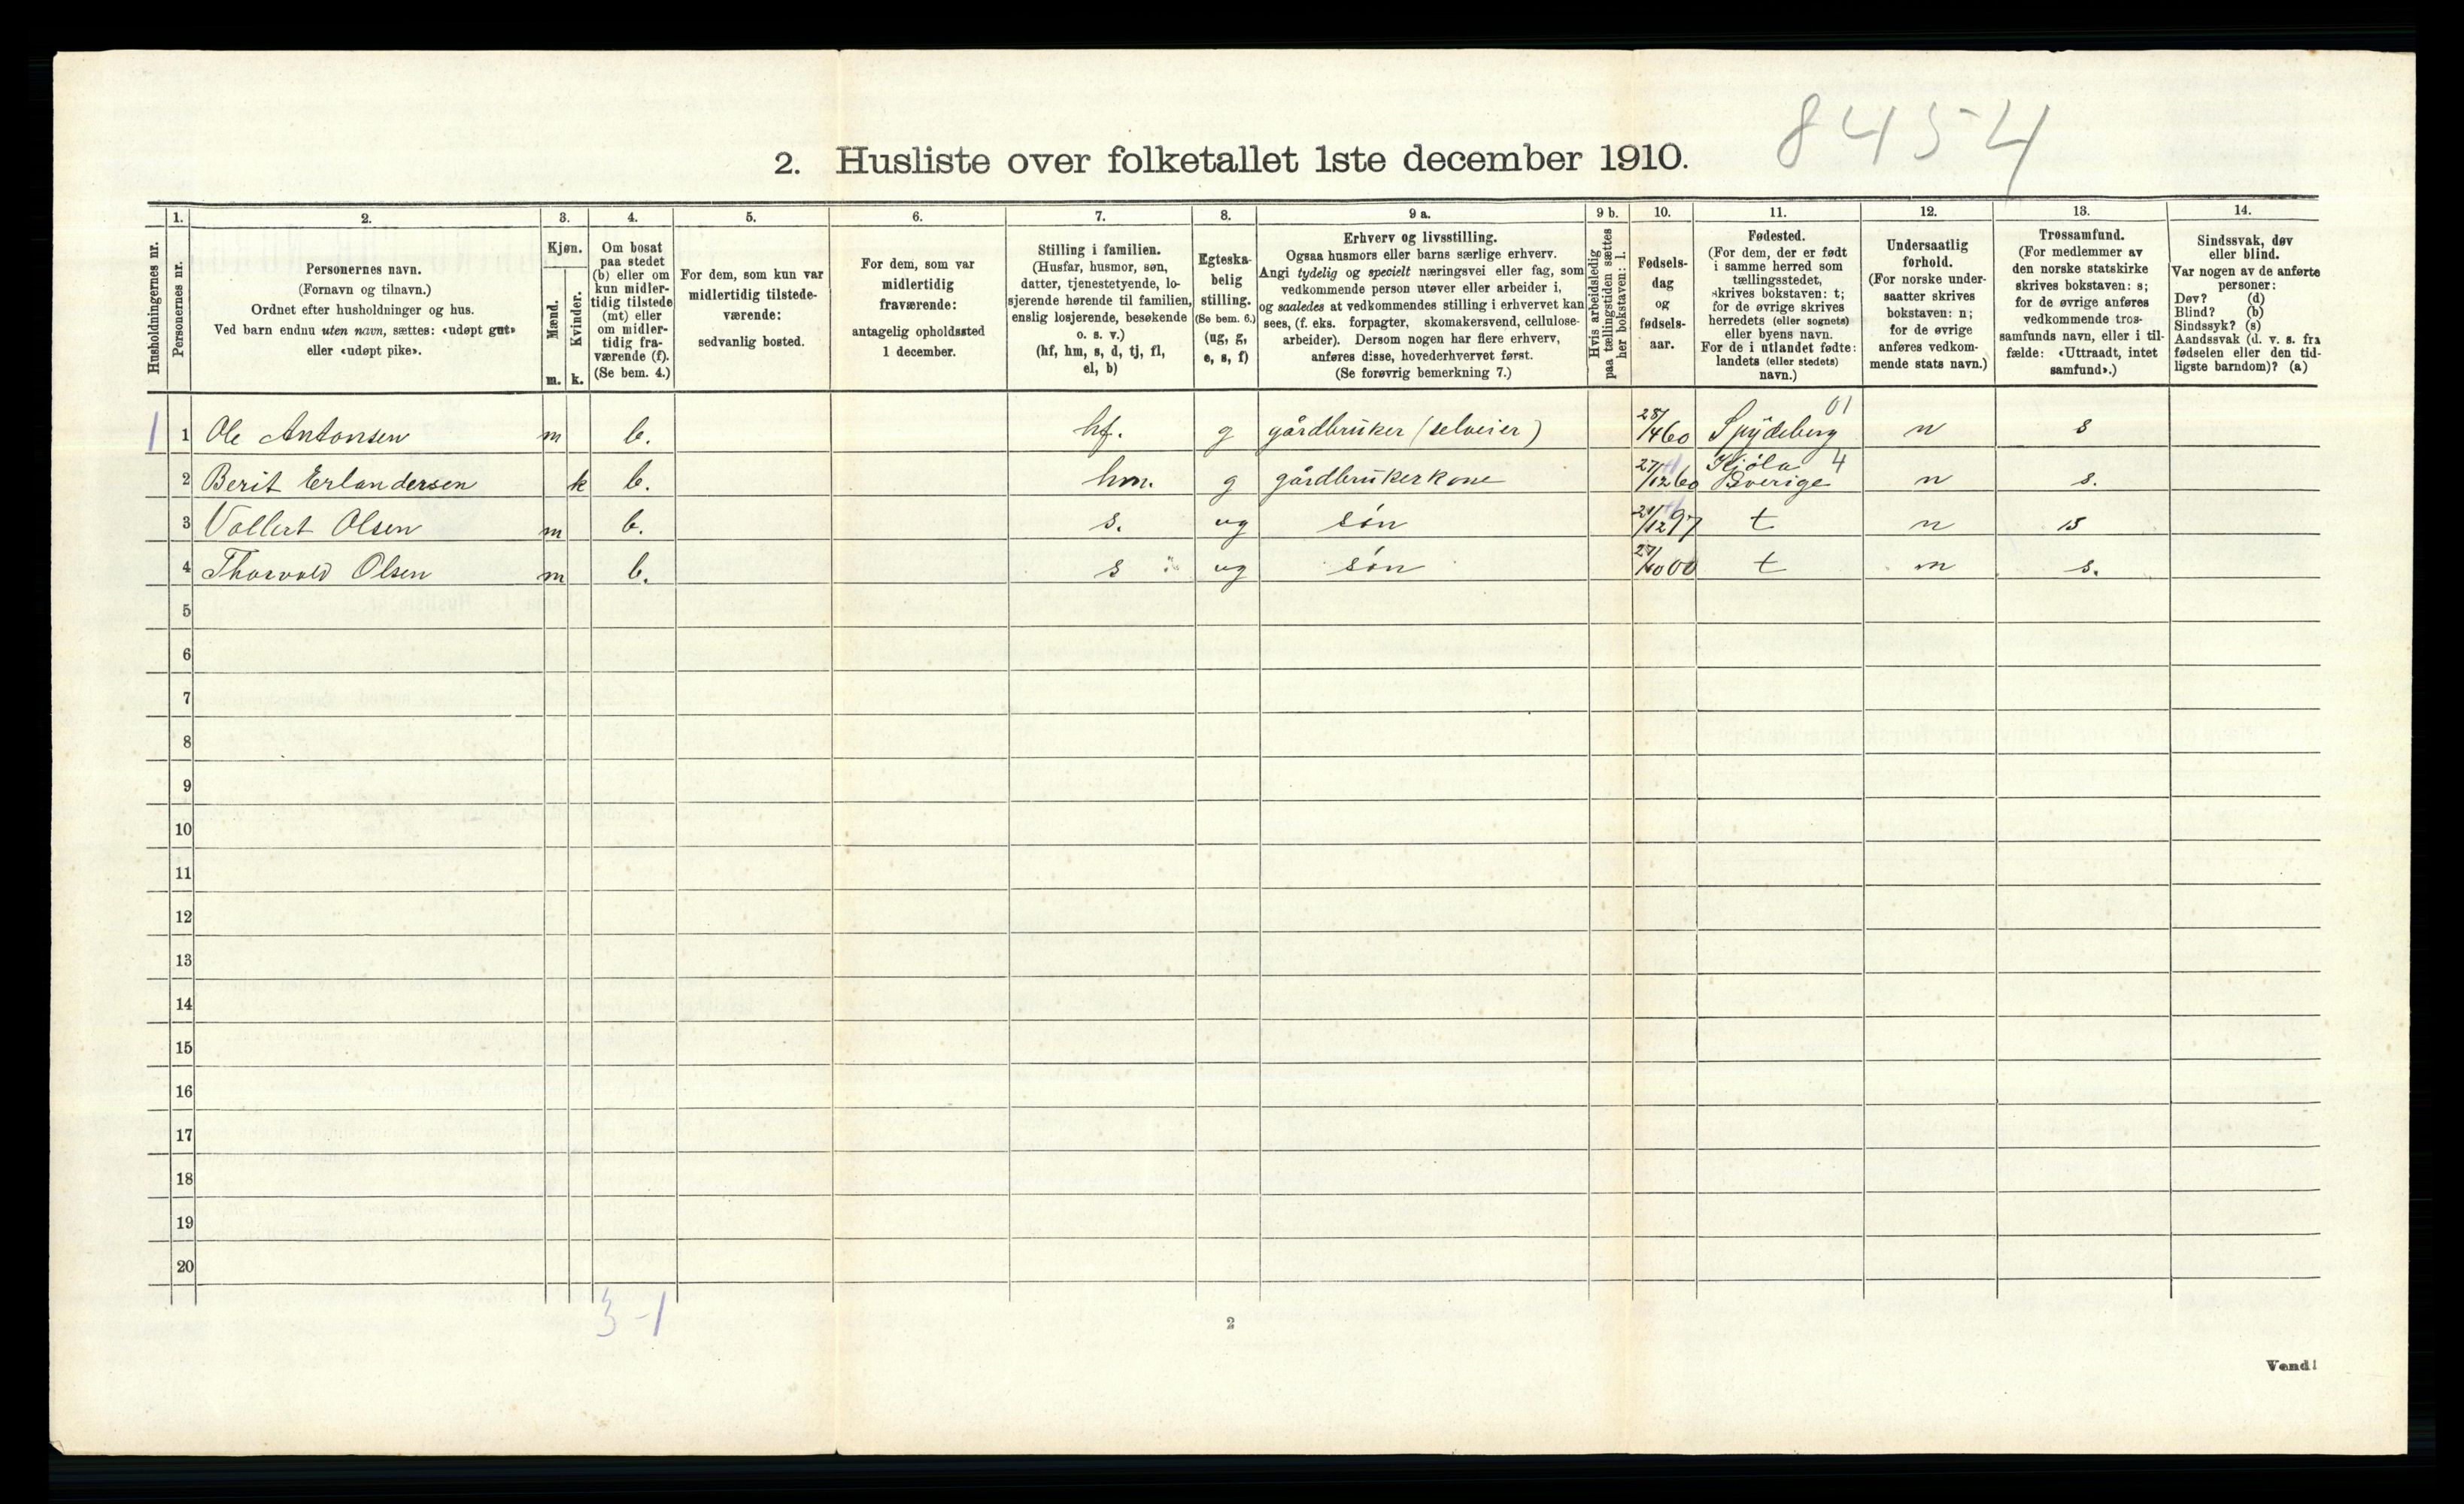 8454
2. Husliste over folketallet 1ste december 1910.
Husholdningernes nr.
1.
Personernes nr.
2.
Personernes navn.
(Fornavn og tilnavn.)
Ordnet efter husholdninger og hus.
Ved barn endnu uten navn, sættes: «udøpt gut»
eller «udøpt pike».
3.
Kjøn.
Mænd.
m.
Kvinder.
k.
4.
Om bosat
paa stedet
(b) eller om
kun midler-
tidig tilstede
(mt) eller
om midler-
tidig fra-
værende (f).
(Se bem. 4.)
5.
For dem, som kun var
midlertidig tilstede-
værende:
sedvanlig bosted.
6.
For dem, som var
midlertidig
fraværende:
antagelig opholdssted
1 december.
7.
Stilling i familien.
(Husfar, husmor, søn,
datter, tjenestetyende, lo-
sjerende hørende til familien,
enslig losjerende, besøkende
o. s. v.)
(hf, hm, s, d, tj, fl,
el, b)
8.
Egteska-
belig
stilling.
(Se bem. 6.)
(ug, g,
e, s, f)
9 a.
Erhverv og livsstilling.
Ogsaa husmors eller barns særlige erhverv.
Angi tydelig og specielt næringsvei eller fag, som
vedkommende person utøver eller arbeider i,
og saaledes at vedkommendes stilling i erhvervet kan
sees, (f. eks. forpagter, skomakersvend, cellulose-
arbeider). Dersom nogen har flere erhverv,
anføres disse, hovederhvervet først.
(Se forøvrig bemerkning 7.)
9 b.
Hvis arbeidsledig
paa tællingstiden sættes
her bokstaven: l.
10.
Fødsels-
dag
og
fødsels-
aar.
11.
Fødested.
(For dem, der er født
i samme herred som
tællingsstedet,
skrives bokstaven: t;
for de øvrige skrives
herredets (eller sognets)
eller byens navn.
For de i utlandet fødte:
landets (eller stedets)
navn.)
12.
Undersaatlig
forhold.
(For norske under-
saatter skrives
bokstaven: n;
for de øvrige
anføres vedkom-
mende stats navn.)
13.
Trossamfund.
(For medlemmer av
den norske statskirke
skrives bokstaven: s;
for de øvrige anføres
vedkommende tros-
samfunds navn, eller i til-
fælde: «Uttraadt, intet
samfund».)
14.
Sindssvak, døv
eller blind.
Var nogen av de anførte
personer:
Døv? (d)
Blind? (b)
Sindssyk? (s)
Aandssvak (d. v. s. fra
fødselen eller den tid-
ligste barndom)? (a)
1 1 Ole Antonsen m b. hf. g gårdbruker (selveier) 28/4 60 Spydeberg 01 n s
2 Berit Erlandersen k b. hm. g gårdbrukerkone 27/12 60 Sverige 4 n s.
3 Vollert Olsen m b. s. ug søn 21/12 97 t n s
4 Thorvald Olsen m b. s ug søn t n s.
5
6
7
8
9
10
11
12
13
14
15
16
17
18
19
20
3-1
2
Vend!